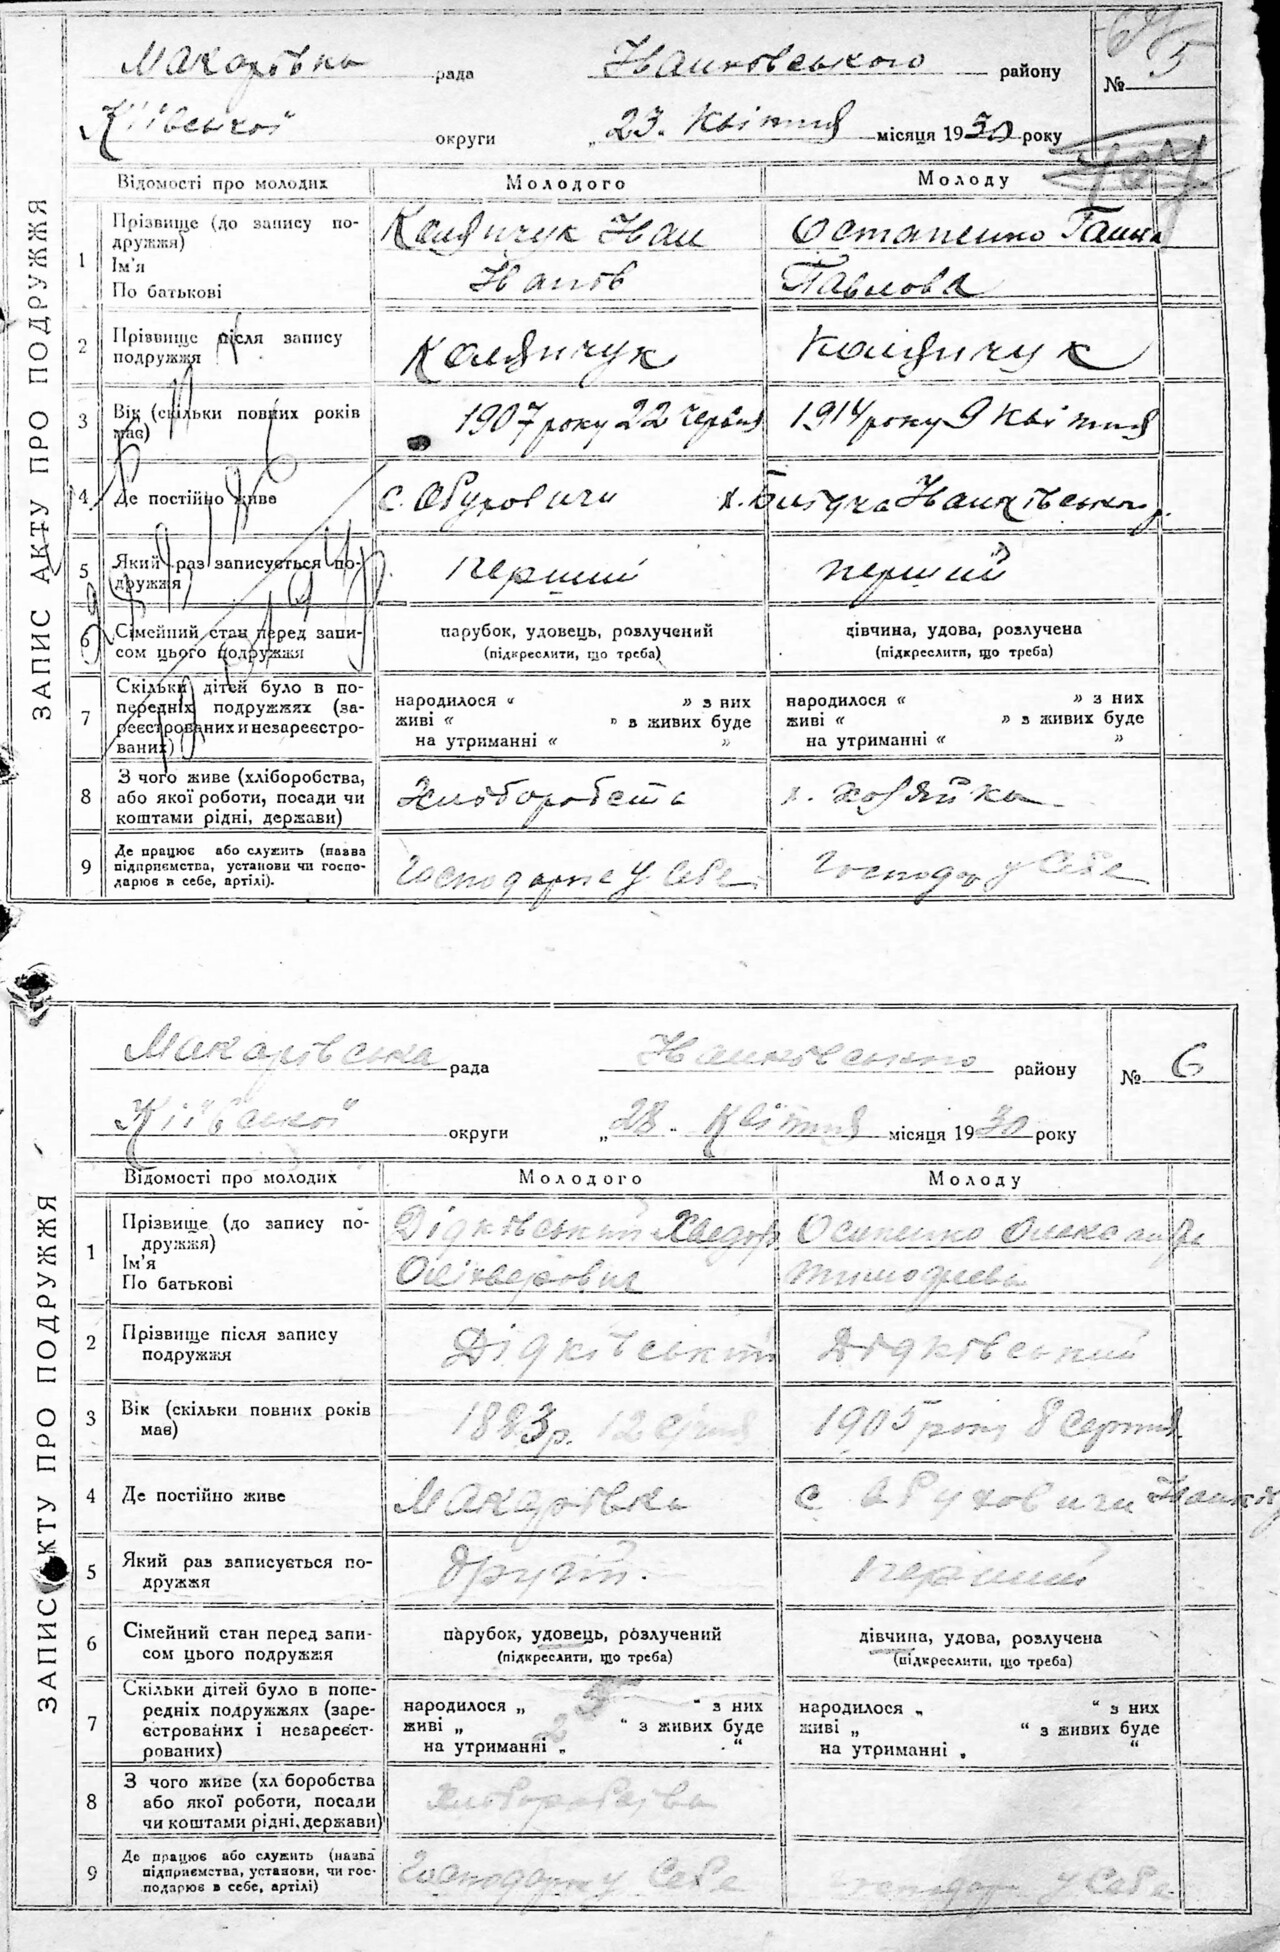 ЗАПИС АКТУ ПРО ПОДРУЖЖЯ
Макарівка рада Іванковського району № 5
Київської округи „23. Квітня місяця 1930 року
Відомості про молодих Молодого Молоду
1 Прізвище (до запису по-
дружжя)
Ім'я
По батькові
Іван
Іванов
Остапенко Ганна
Павлова
2 Прізвище після запису
подружжя
3 Вік (скільки повних років
має)
1907 року 22 Червня
1914 року 9 Квітня
4 Де постійно живе
с. Обуховичи
Іванківськ. р.
5 Який раз записується по-
дружжя
перший
перший
6 Сімейний стан перед запи-
сом цього подружжя
парубок, удовець, розлучений
(підкреслити, що треба)
дівчина, удова, розлучена
(підкреслити, що треба)
7 Скільки дітей було в по-
передніх подружжях (за-
реєстрованих и незареєстро-
ваних)
народилося “ ” з них
живі “ ” в живих буде
на утриманні “ ”
народилося “ ” з них
живі “ ” в живих буде
на утриманні “ ”
8 З чого живе (хліборобства,
або якої роботи, посади чи
коштами рідні, держави)
Хліборобств
д. хозяйка
9 Де працює або служить (назва
підприємства, установи чи госпо-
дарює в себе, артілі).
Господарює у себе
Господар у себе
ЗАПИС АКТУ ПРО ПОДРУЖЖЯ
Макарівська рада Іванковського району № 6
Київської округи „28. Квітня місяця 1930 року
Відомості про молодих Молодого Молоду
1 Прізвище (до запису по-
дружжя)
Ім'я
По батькові
Дідківський Хведор
Осипенко Олександра
Тимофієва
2 Прізвище після запису
подружжя
Дідківський
Дідківський
3 Вік (скільки повних років
має)
1883р. 12 Січня
1905 року 8 Серпня
4 Де постійно живе
Макарівка
с Обуховичи
5 Який раз записується по-
дружжя
другий.
перший
6 Сімейний стан перед запи-
сом цього подружжя
парубок, удовець, розлучений
(підкреслити, що треба)
дівчина, удова, розлучена
(підкреслити, що треба)
7 Скільки дітей було в попе-
редніх подружжях (заре-
єстрованих і незареєст-
рованих)
народилося „ 5 “ з них
живі „ 2 “ з живих буде
на утриманні „ “
народилося „ “ з них
живі „ “ з живих буде
на утриманні „ “
8 З чого живе (хл боробства
або якої роботи, посади
чи коштами рідні, держави)
Хліборобства
9 Де працює або служить (назва
підприємства, установи, чи гос-
подарює в себе, артілі)
Господарює у себе
господар у себе